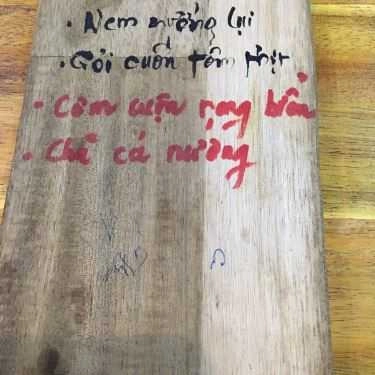 • Nem nướng lụi
• Gỏi cuốn tôm thịt
• Cơm cuộn rong biển
• Chả cá nướng